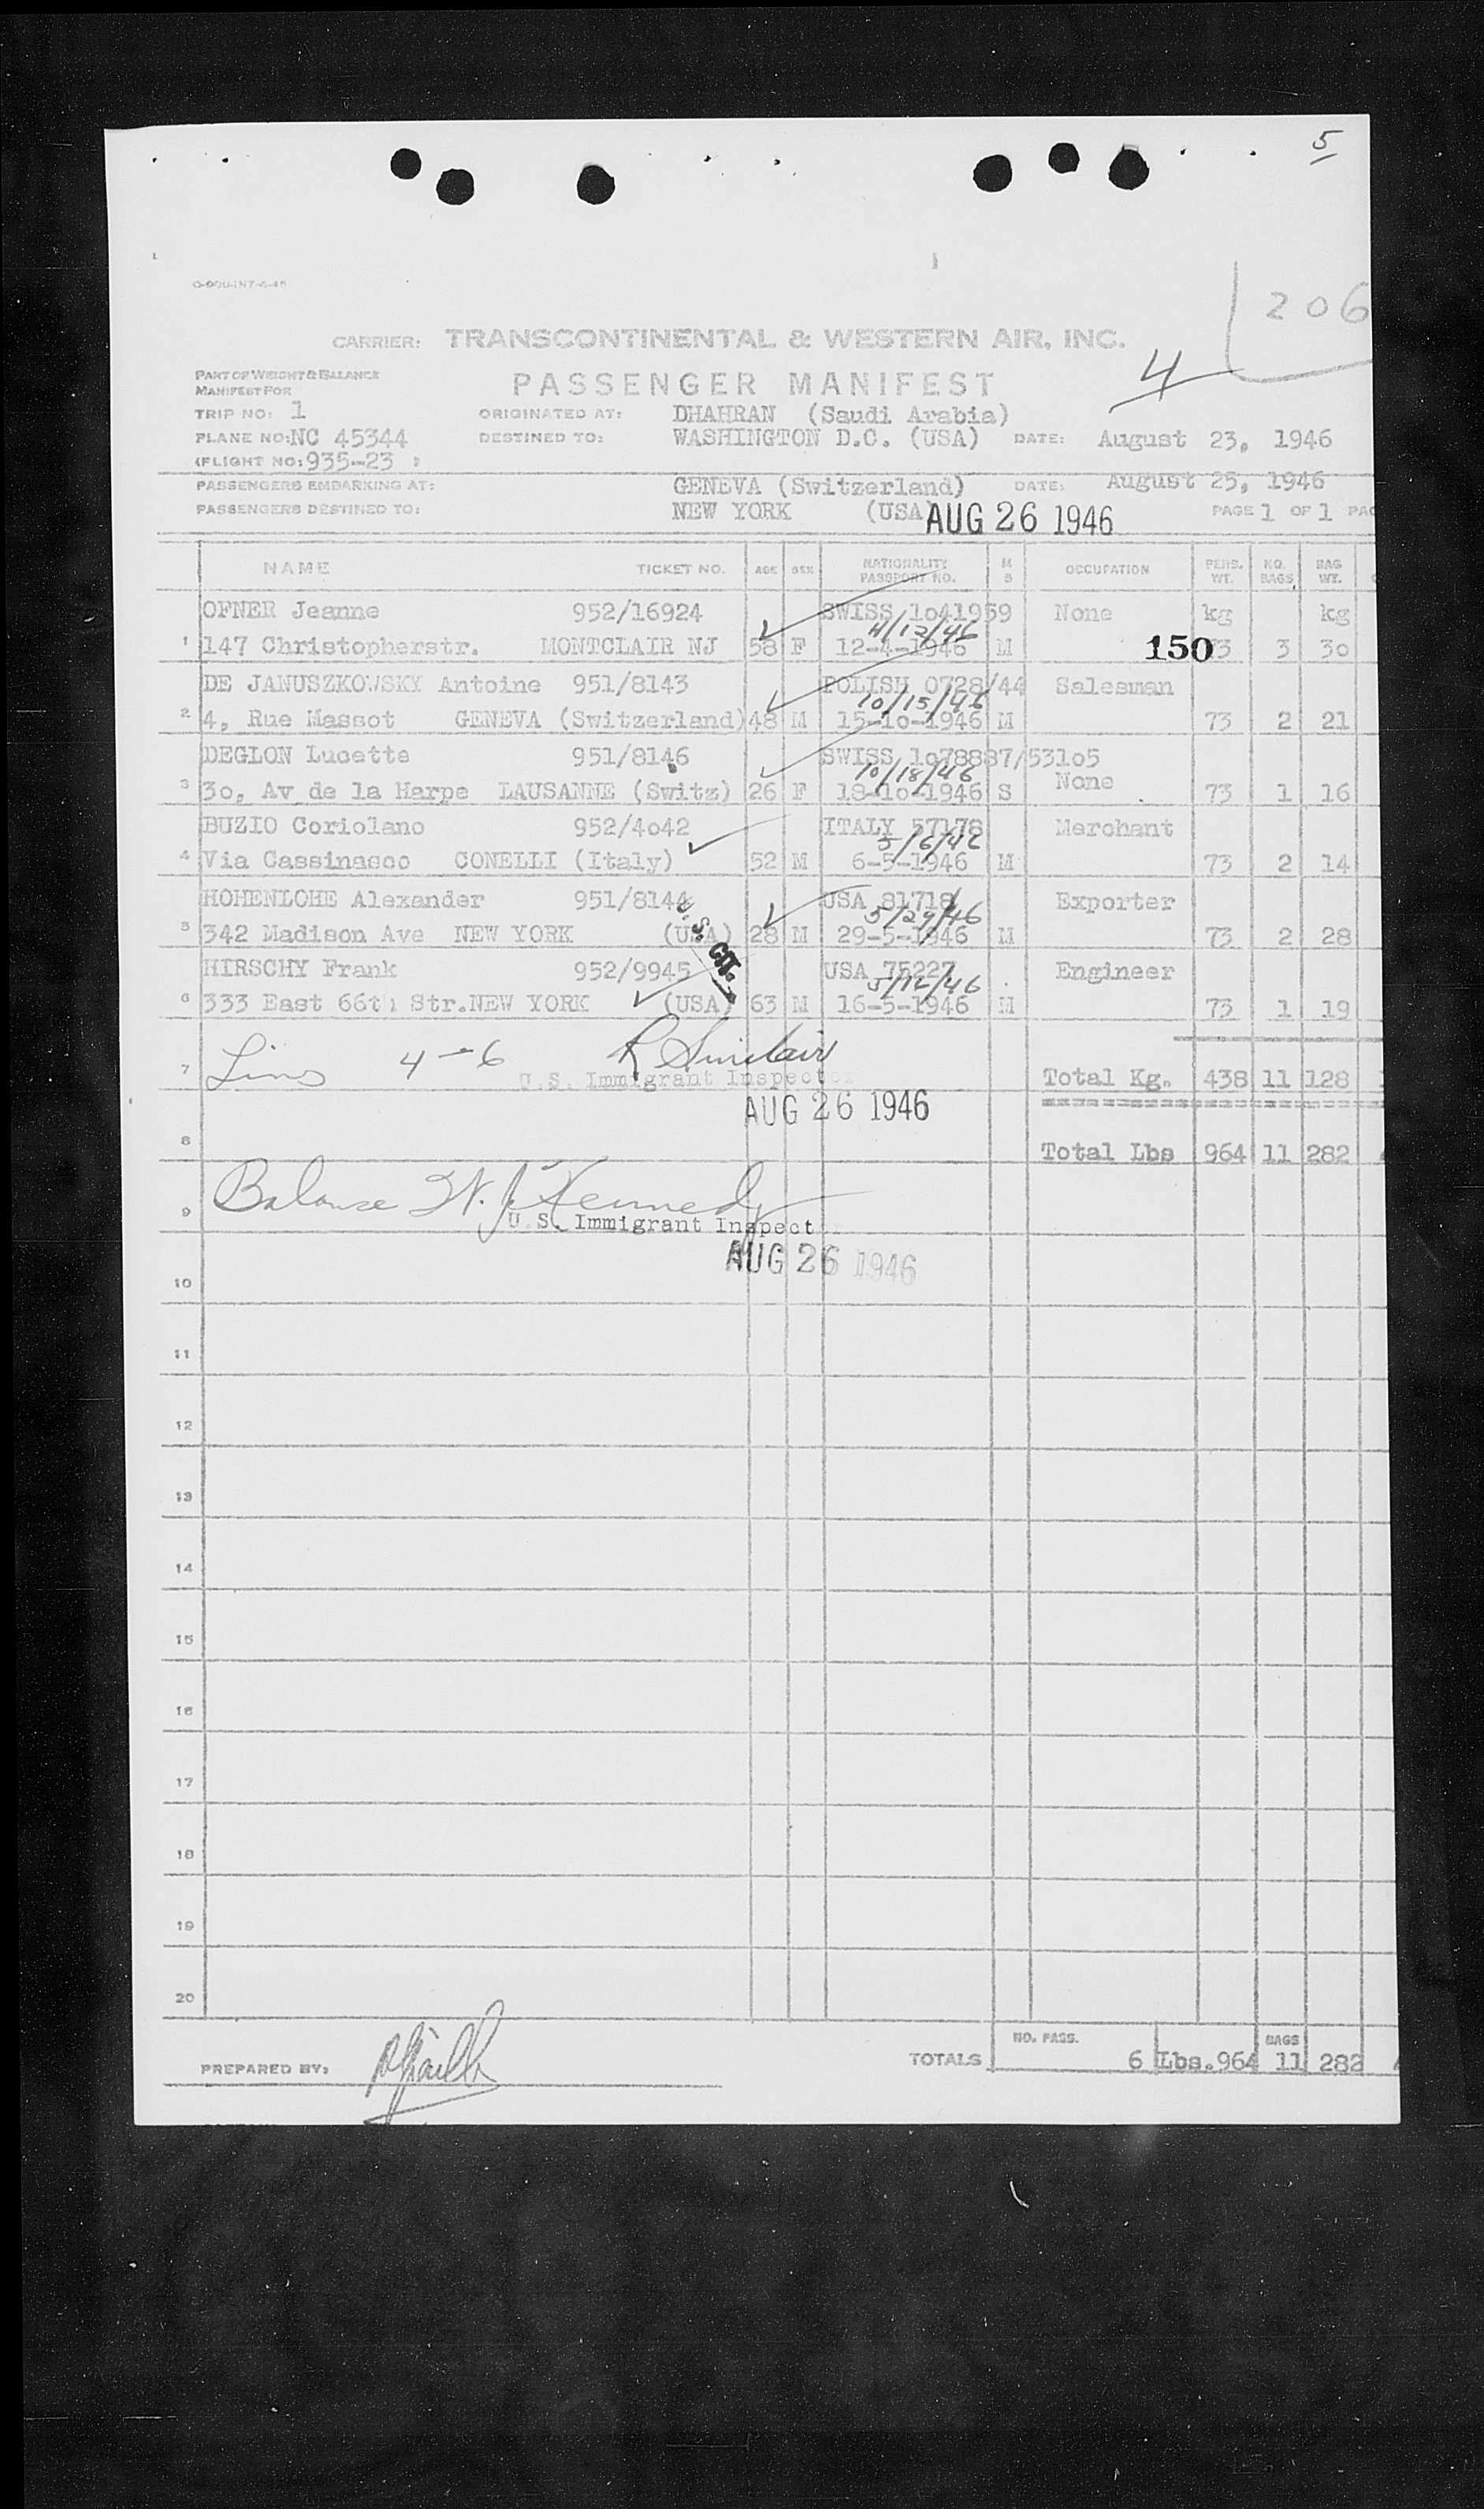 5
206
CARRIER: TRANSCONTINENTAL & WESTERN AIR, INC.
4
PART OF WEIGHT & BALANCE
MANIFEST FOR
PASSENGER MANIFEST
TRIP NO: 1 ORIGINATED AT: DHAHRAN (Saudi Arabia)
PLANE NO: NC 45344 DESTINED TO: WASHINGTON D.C. (USA) DATE: August 23, 1946
(FLIGHT NO: 935-23 )
PASSENGERS EMBARKING AT: GENEVA (Switzerland) DATE: August 25, 1946
PASSENGERS DESTINED TO: NEW YORK (USA) AUG 26 1946 PAGE 1 OF 1 PAG
NAME TICKET NO. AGE SEX NATIONALITY PASSPORT NO. M S OCCUPATION PERS. WT. NO. BAGS BAG WT.
OFNER Jeanne 952/16924 SWISS 1041959 None kg kg
4/12/46
1 147 Christopherstr. MONTCLAIR NJ 58 F 12-4-1946 M 150 73 3 30
DE JANUSZKOWSKY Antoine 951/8143 POLISH 0728/44 Salesman
10/15/46
2 4, Rue Massot GENEVA (Switzerland) 48 M 15-10-1946 M 73 2 21
DEGLON Lucette 951/8146 SWISS 1078887/53105
10/18/46 None
3 30, Av de la Harpe LAUSANNE (Switz) 26 F 18-10-1946 S 73 1 16
BUZIO Coriolano 952/4042 ITALY 57178 Merchant
5/6/46
4 Via Cassinasco CONELLI (Italy) 52 M 6-5-1946 M 73 2 14
HOHENLOHE Alexander 951/8144 USA 81718 Exporter
5/29/46
5 342 Madison Ave NEW YORK (USA) 28 M 29-5-1946 M 73 2 28
U.S. CIT.
HIRSCHY Frank 952/9945 USA 75227 Engineer
6 333 East 66th Str. NEW YORK (USA) 63 M 16-5-1946 M 73 1 19
4-6 R Sinclair
7 U.S. Immigrant Inspector Total Kg. 438 11 128
AUG 26 1946
8 Total Lbs 964 11 282
Balance W. J. Kennedy
9 U.S. Immigrant Inspector
AUG 26 1946
10
11
12
13
14
15
16
17
18
19
20
NO. PASS. BAGS
PREPARED BY: TOTALS 6 Lbs. 964 11 282